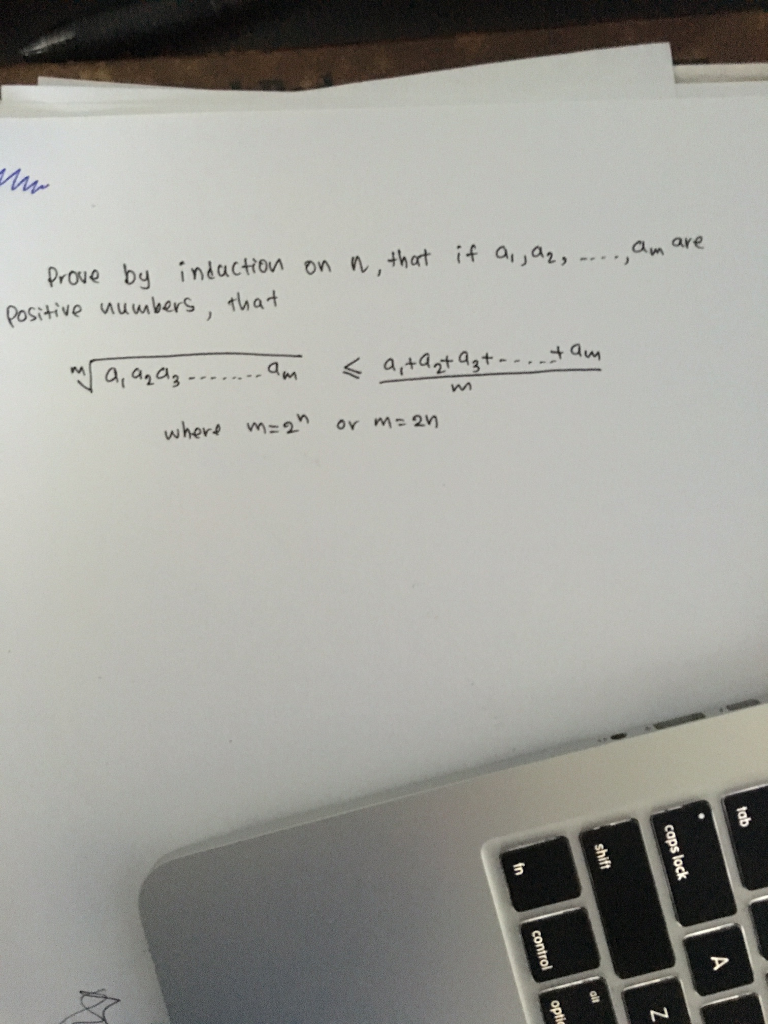 Prove by induction on n, that if a₁, a₂, ...., aₘ are
positive numbers, that
ᵐ√a₁a₂a₃........aₘ ≤ a₁+a₂+a₃+.....+aₘ / m
where m=2ⁿ or m=2n
tab
caps lock
shift
fn
A
control
Z
alt